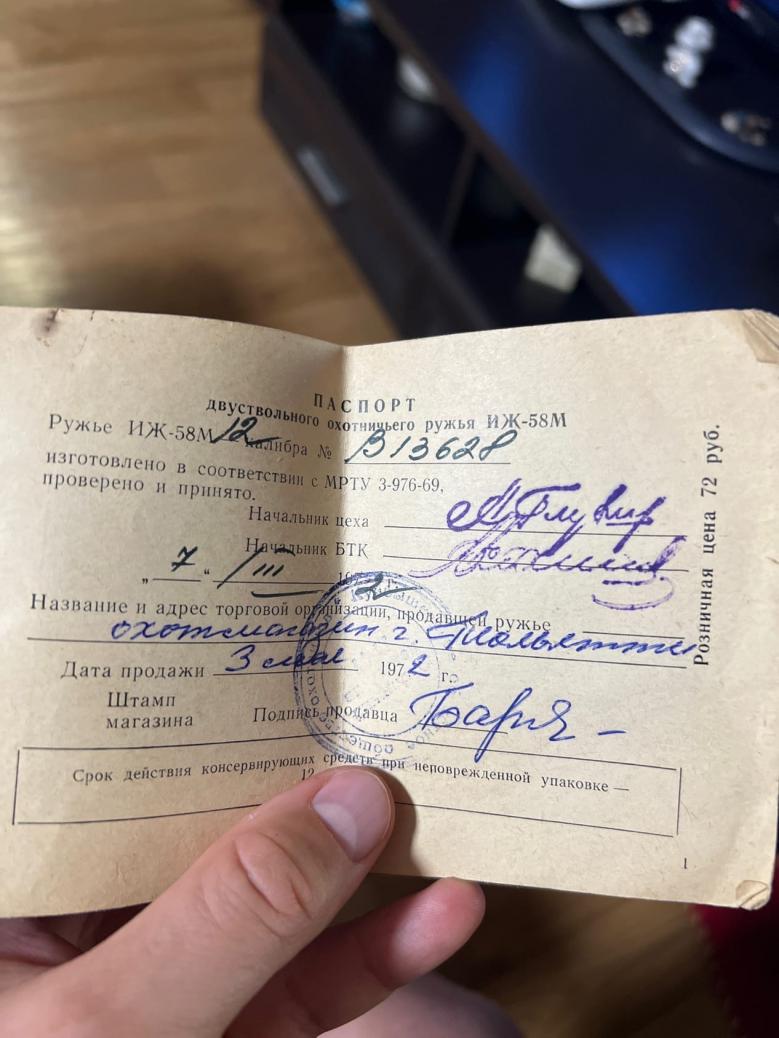 ПАСПОРТ
двуствольного охотничьего ружья ИЖ-58М
Ружье ИЖ-58М 12 калибра № В13628
изготовлено в соответствии с МРТУ 3-976-69,
проверено и принято.
Начальник цеха
Начальник БТК
„ 7 “ III 1972 г.
Название и адрес торговой организации, продавшей ружье
охотмагазин г. Тольятти
Дата продажи 3 мая 1972 г.
Штамп
магазина
Подпись продавца
Срок действия консервирующих средств при неповрежденной упаковке —
12
1
Розничная цена 72 руб.